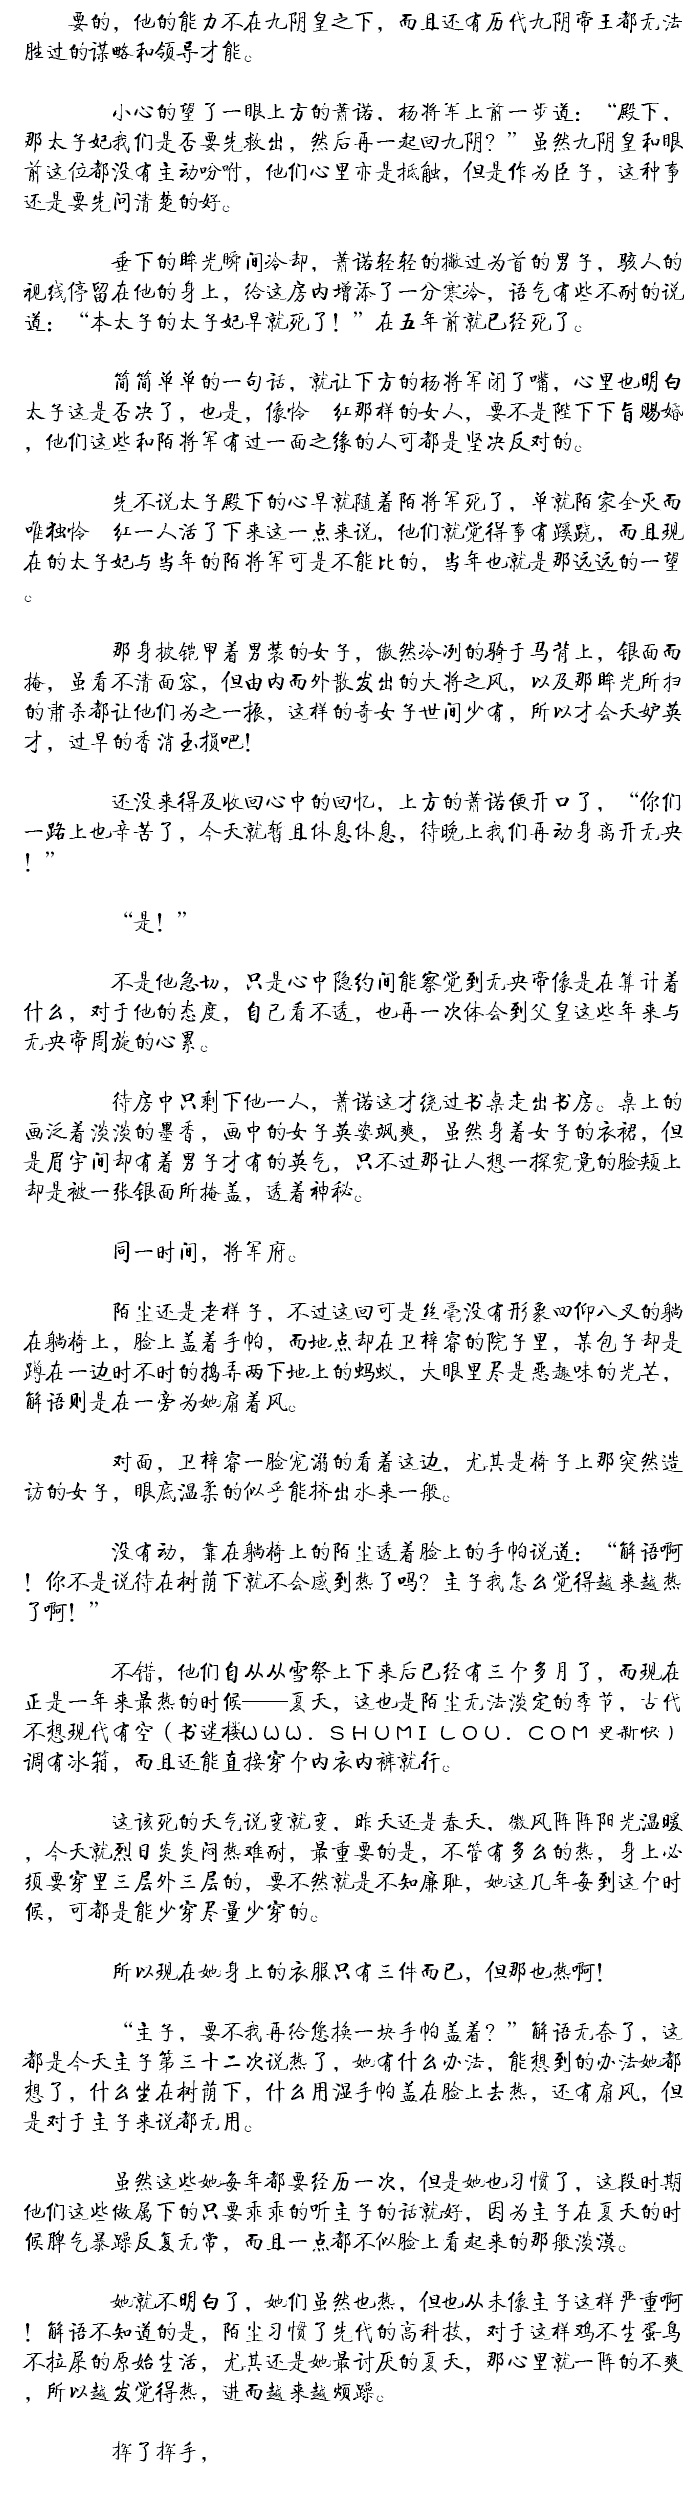 要的，他的能力不在九阴皇之下，而且还有历代九阴帝王都无法
胜过的谋略和领导才能。
小心的望了一眼上方的萧诺，杨将军上前一步道：“殿下，
那太子妃我们是否要先救出，然后再一起回九阴？”虽然九阴皇和眼
前这位都没有主动吩咐，他们心里亦是抵触，但是作为臣子，这种事
还是要先问清楚的好。
垂下的眸光瞬间冷却，萧诺轻轻的撇过为首的男子，骇人的
视线停留在他的身上，给这房内增添了一分寒冷，语气有些不耐的说
道：“本太子的太子妃早就死了！”在五年前就已经死了。
简简单单的一句话，就让下方的杨将军闭了嘴，心里也明白
太子这是否决了，也是，像怜　红那样的女人，要不是陛下下旨赐婚
，他们这些和陌将军有过一面之缘的人可都是坚决反对的。
先不说太子殿下的心早就随着陌将军死了，单就陌家全灭而
唯独怜　红一人活了下来这一点来说，他们就觉得事有蹊跷，而且现
在的太子妃与当年的陌将军可是不能比的，当年也就是那远远的一望
。
那身披铠甲着男装的女子，傲然冷冽的骑于马背上，银面而
掩，虽看不清面容，但由内而外散发出的大将之风，以及那眸光所扫
的肃杀都让他们为之一振，这样的奇女子世间少有，所以才会天妒英
才，过早的香消玉损吧！
还没来得及收回心中的回忆，上方的萧诺便开口了，“你们
一路上也辛苦了，今天就暂且休息休息，待晚上我们再动身离开无央
！”
“是！”
不是他急切，只是心中隐约间能察觉到无央帝像是在算计着
什么，对于他的态度，自己看不透，也再一次体会到父皇这些年来与
无央帝周旋的心累。
待房中只剩下他一人，萧诺这才绕过书桌走出书房。桌上的
画泛着淡淡的墨香，画中的女子英姿飒爽，虽然身着女子的衣裙，但
是眉宇间却有着男子才有的英气，只不过那让人想一探究竟的脸颊上
却是被一张银面所掩盖，透着神秘。
同一时间，将军府。
陌尘还是老样子，不过这回可是丝毫没有形象四仰八叉的躺
在躺椅上，脸上盖着手帕，而地点却在卫梓睿的院子里，某包子却是
蹲在一边时不时的捣弄两下地上的蚂蚁，大眼里尽是恶趣味的光芒，
解语则是在一旁为她扇着风。
对面，卫梓睿一脸宠溺的看着这边，尤其是椅子上那突然造
访的女子，眼底温柔的似乎能挤出水来一般。
没有动，靠在躺椅上的陌尘透着脸上的手帕说道：“解语啊
！你不是说待在树荫下就不会感到热了吗？主子我怎么觉得越来越热
了啊！”
不错，他们自从从雪祭上下来后已经有三个多月了，而现在
正是一年来最热的时候——夏天，这也是陌尘无法淡定的季节，古代
不想现代有空（书迷楼ＷＷＷ．ＳＨＵＭＩＬＯＵ．ＣＯＭ更新快）
调有冰箱，而且还能直接穿个内衣内裤就行。
这该死的天气说变就变，昨天还是春天，微风阵阵阳光温暖
，今天就烈日炎炎闷热难耐，最重要的是，不管有多么的热，身上必
须要穿里三层外三层的，要不然就是不知廉耻，她这几年每到这个时
候，可都是能少穿尽量少穿的。
所以现在她身上的衣服只有三件而已，但那也热啊！
“主子，要不我再给您换一块手帕盖着？”解语无奈了，这
都是今天主子第三十二次说热了，她有什么办法，能想到的办法她都
想了，什么坐在树荫下，什么用湿手帕盖在脸上去热，还有扇风，但
是对于主子来说都无用。
虽然这些她每年都要经历一次，但是她也习惯了，这段时期
他们这些做属下的只要乖乖的听主子的话就好，因为主子在夏天的时
候脾气暴躁反复无常，而且一点都不似脸上看起来的那般淡漠。
她就不明白了，她们虽然也热，但也从未像主子这样严重啊
！解语不知道的是，陌尘习惯了先代的高科技，对于这样鸡不生蛋鸟
不拉屎的原始生活，尤其还是她最讨厌的夏天，那心里就一阵的不爽
，所以越发觉得热，进而越来越烦躁。
挥了挥手，